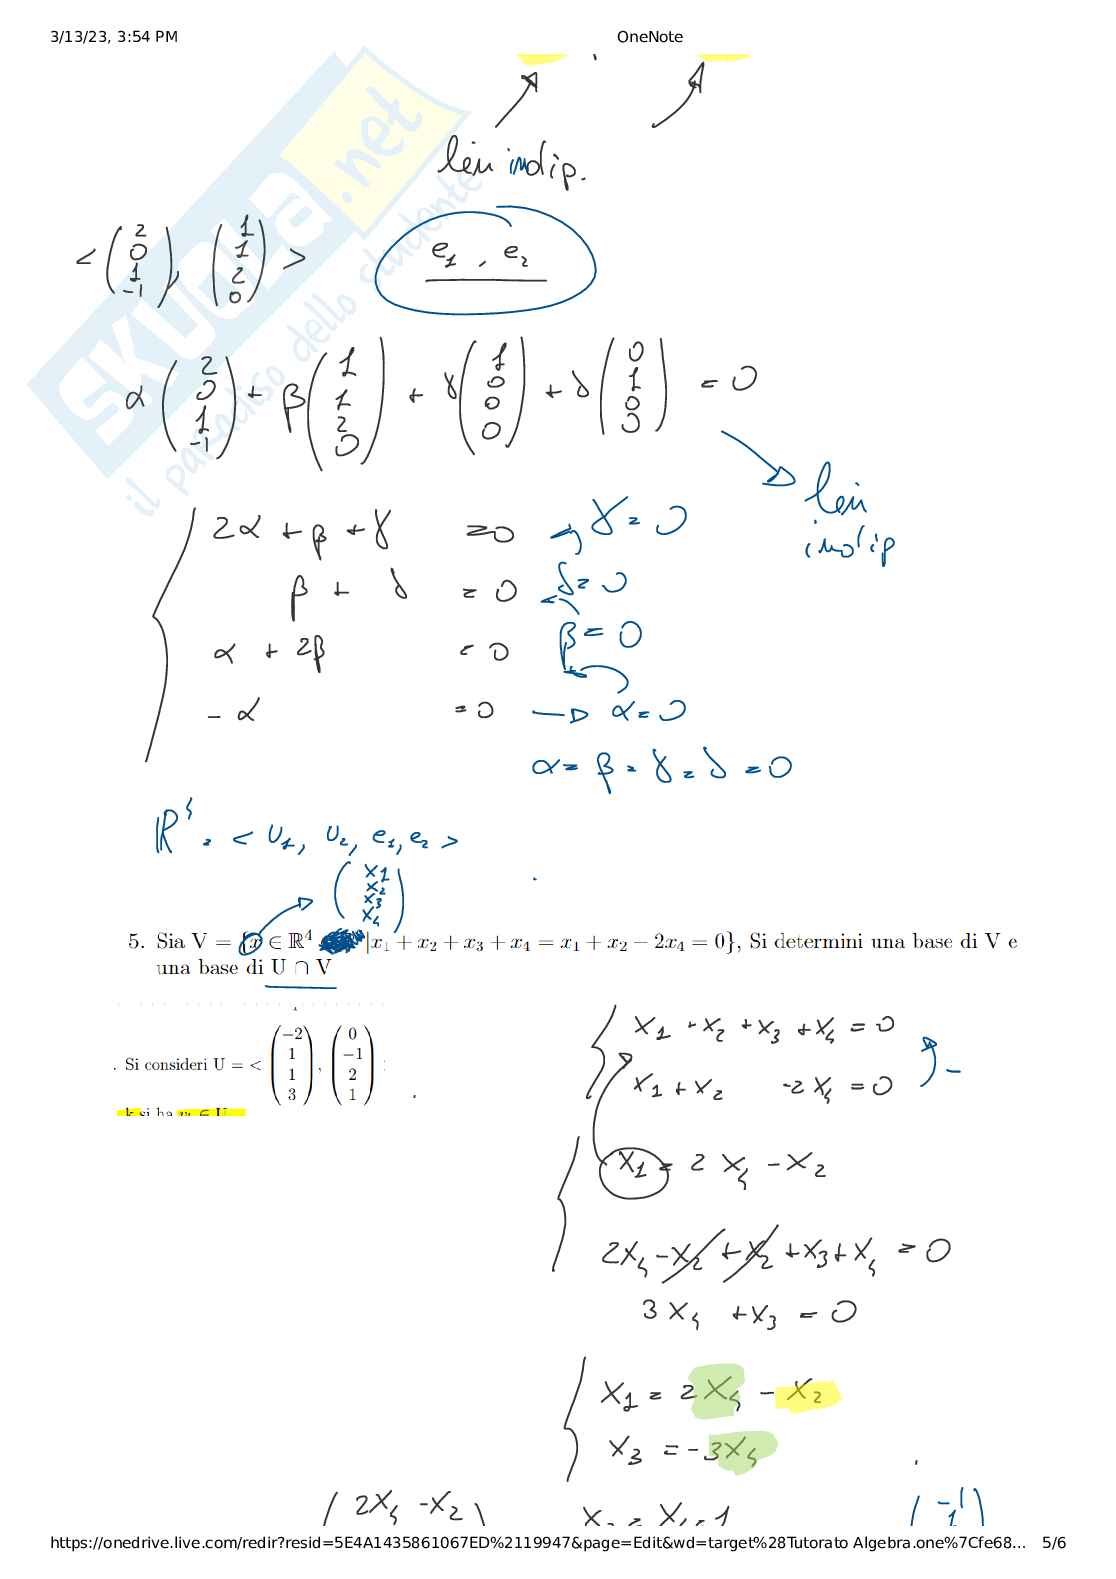 3/13/23, 3:54 PM OneNote
lin indip.
< (2 0 1 -1), (1 1 2 0) > e₁, e₂
α (2 0 1 -1) + β (1 1 2 0) + γ (1 0 0 0) + δ (0 1 0 0) = 0
lin
indip
2α + β + γ = 0 → γ = 0
β + δ = 0 δ = 0
α + 2β = 0 β = 0
- α = 0 → α = 0
α = β = γ = δ = 0
ℝ⁴ = < U₁, U₂, e₁, e₂ >
(x₁ x₂ x₃ x₄)
5. Sia V = {x ∈ ℝ⁴ |x₁ + x₂ + x₃ + x₄ = x₁ + x₂ − 2x₄ = 0}, Si determini una base di V e
una base di U ∩ V
x₁ + x₂ + x₃ + x₄ = 0
. Si consideri U = < (−2 1 1 3), (0 −1 2 1)
x₁ + x₂ -2x₄ = 0 -
k si ha ∈ U
x₁ = 2x₄ - x₂
2x₄ - x₂ + x₂ + x₃ + x₄ = 0
3x₄ + x₃ = 0
x₁ = 2x₄ - x₂
x₃ = -3x₄
(2x₄ - x₂)
SKUola.net
il paradiso dello studente
https://onedrive.live.com/redir?resid=5E4A1435861067ED%2119947&page=Edit&wd=target%28Tutorato Algebra.one%7Cfe68... 5/6